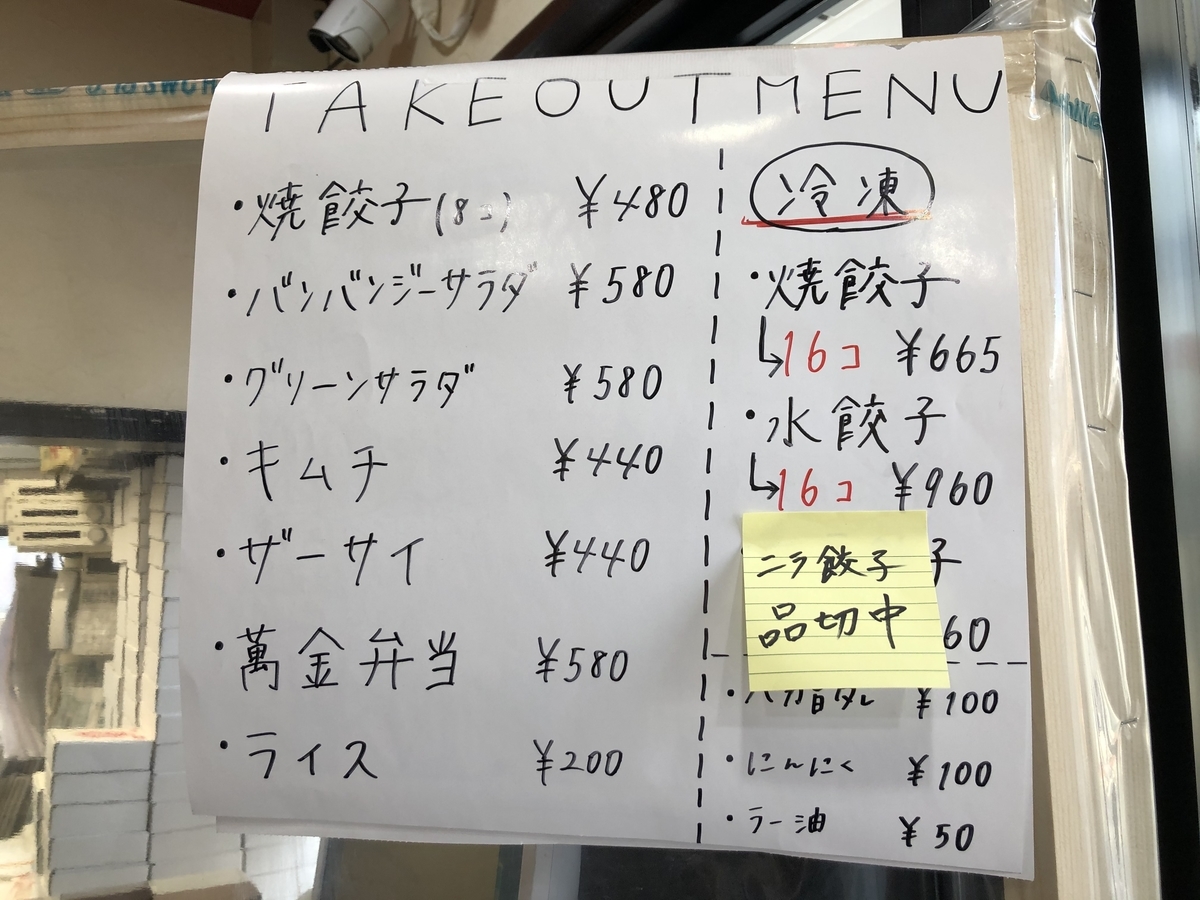 TAKEOUT MENU
・焼餃子(8コ) ¥480
・バンバンジーサラダ ¥580
・グリーンサラダ ¥580
・キムチ ¥440
・ザーサイ ¥440
・萬金弁当 ¥580
・ライス ¥200
冷凍
・焼餃子
↳16コ ¥665
・水餃子
↳16コ ¥960
ニラ餃子
品切中
子
60
¥100
・にんにく ¥100
・ラー油 ¥50